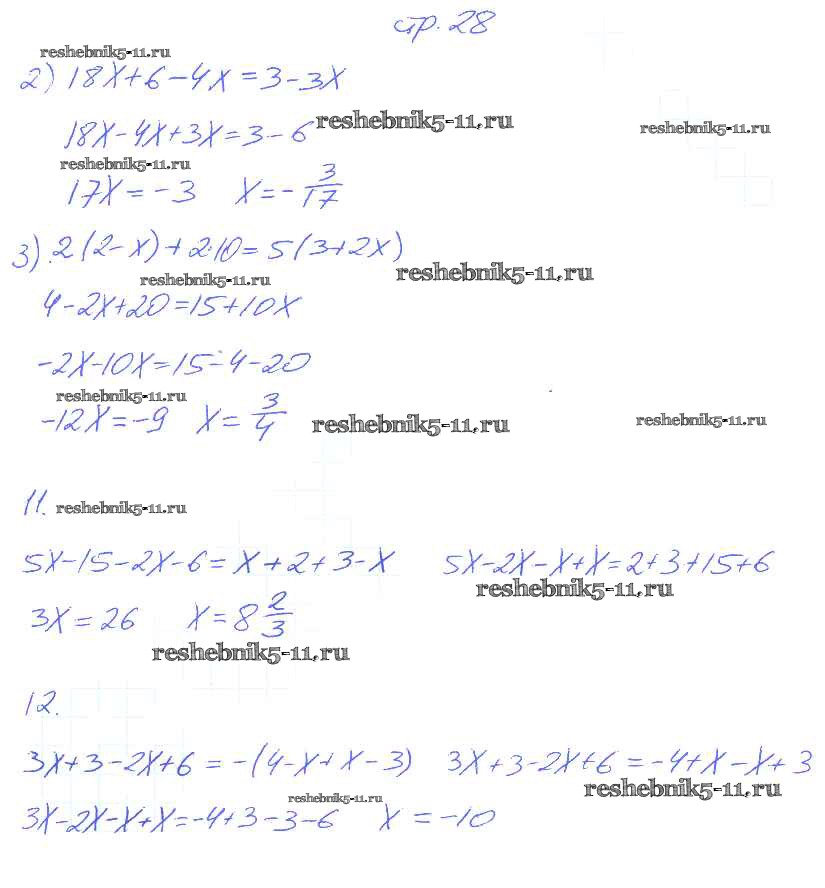 стр. 28
reshebnik5-11.ru
2) 18x+6-4x=3-3x
18x-4x+3x=3-6 reshebnik5-11.ru
reshebnik5-11.ru
reshebnik5-11.ru
17x=-3 x=-3/17
3) 2(2-x)+2·10=5(3+2x)
reshebnik5-11.ru reshebnik5-11.ru
4-2x+20=15+10x
-2x-10x=15-4-20
reshebnik5-11.ru
-12x=-9 x=3/4 reshebnik5-11.ru reshebnik5-11.ru
11. reshebnik5-11.ru
5x-15-2x-6=x+2+3-x 5x-2x-x+x=2+3+15+6
reshebnik5-11.ru
3x=26 x=8 2/3
reshebnik5-11.ru
12.
3x+3-2x+6=-(4-x+x-3) 3x+3-2x+6=-4+x-x+3
reshebnik5-11.ru reshebnik5-11.ru
3x-2x-x+x=-4+3-3-6 x=-10